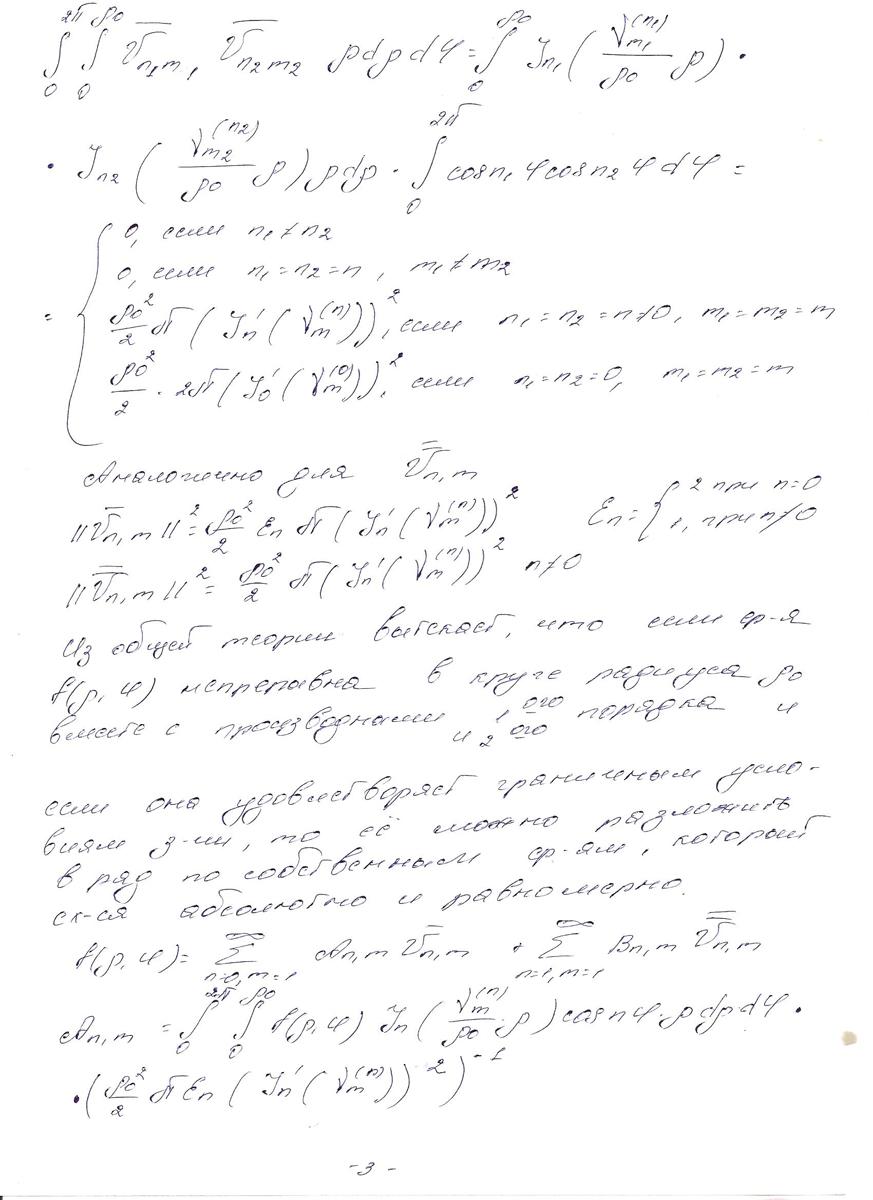 ∫₀^{2π} ∫₀^{ρ₀} V̄_{n₁m₁} V̄_{n₂m₂} ρdρdφ = ∫₀^{ρ₀} J_{n₁}(γ_{m₁}^{(n₁)}/ρ₀ ρ) ·
· J_{n₂}(γ_{m₂}^{(n₂)}/ρ₀ ρ) ρdρ · ∫₀^{2π} cos n₁φ cos n₂φ dφ =
0, если n₁ ≠ n₂
0, если n₁ = n₂ = n, m₁ ≠ m₂
= { ρ₀²/2 π (J'_n(γ_m^{(n)}))², если n₁ = n₂ = n ≠ 0, m₁ = m₂ = m
ρ₀²/2 · 2π (J'₀(γ_m^{(0)}))², если n₁ = n₂ = 0, m₁ = m₂ = m
Аналогично для V̿_{n,m}
||V̄_{n,m}||² = ρ₀²/2 ε_n π (J'_n(γ_m^{(n)}))² ε_n = { 2 при n=0
1, при n≠0
||V̿_{n,m}||² = ρ₀²/2 π (J'_n(γ_m^{(n)}))² n≠0
Из общей теории вытекает, что если ф-я
f(ρ,φ) непрерывна в круге радиуса ρ₀
вместе с производными 1ого и 2ого порядка и
если она удовлетворяет граничным усло-
виям з-чи, то её можно разложить
в ряд по собственным ф-ям, который
сх-ся абсолютно и равномерно.
f(ρ,φ) = Σ_{n=0,m=1}^{∞} A_{n,m} V̄_{n,m} + Σ_{n=1,m=1}^{∞} B_{n,m} V̿_{n,m}
A_{n,m} = ∫₀^{2π} ∫₀^{ρ₀} f(ρ,φ) J_n(γ_m^{(n)}/ρ₀ · ρ) cos nφ · ρdρdφ ·
· (ρ₀²/2 π ε_n (J'_n(γ_m^{(n)}))²)^{-1}
-3-